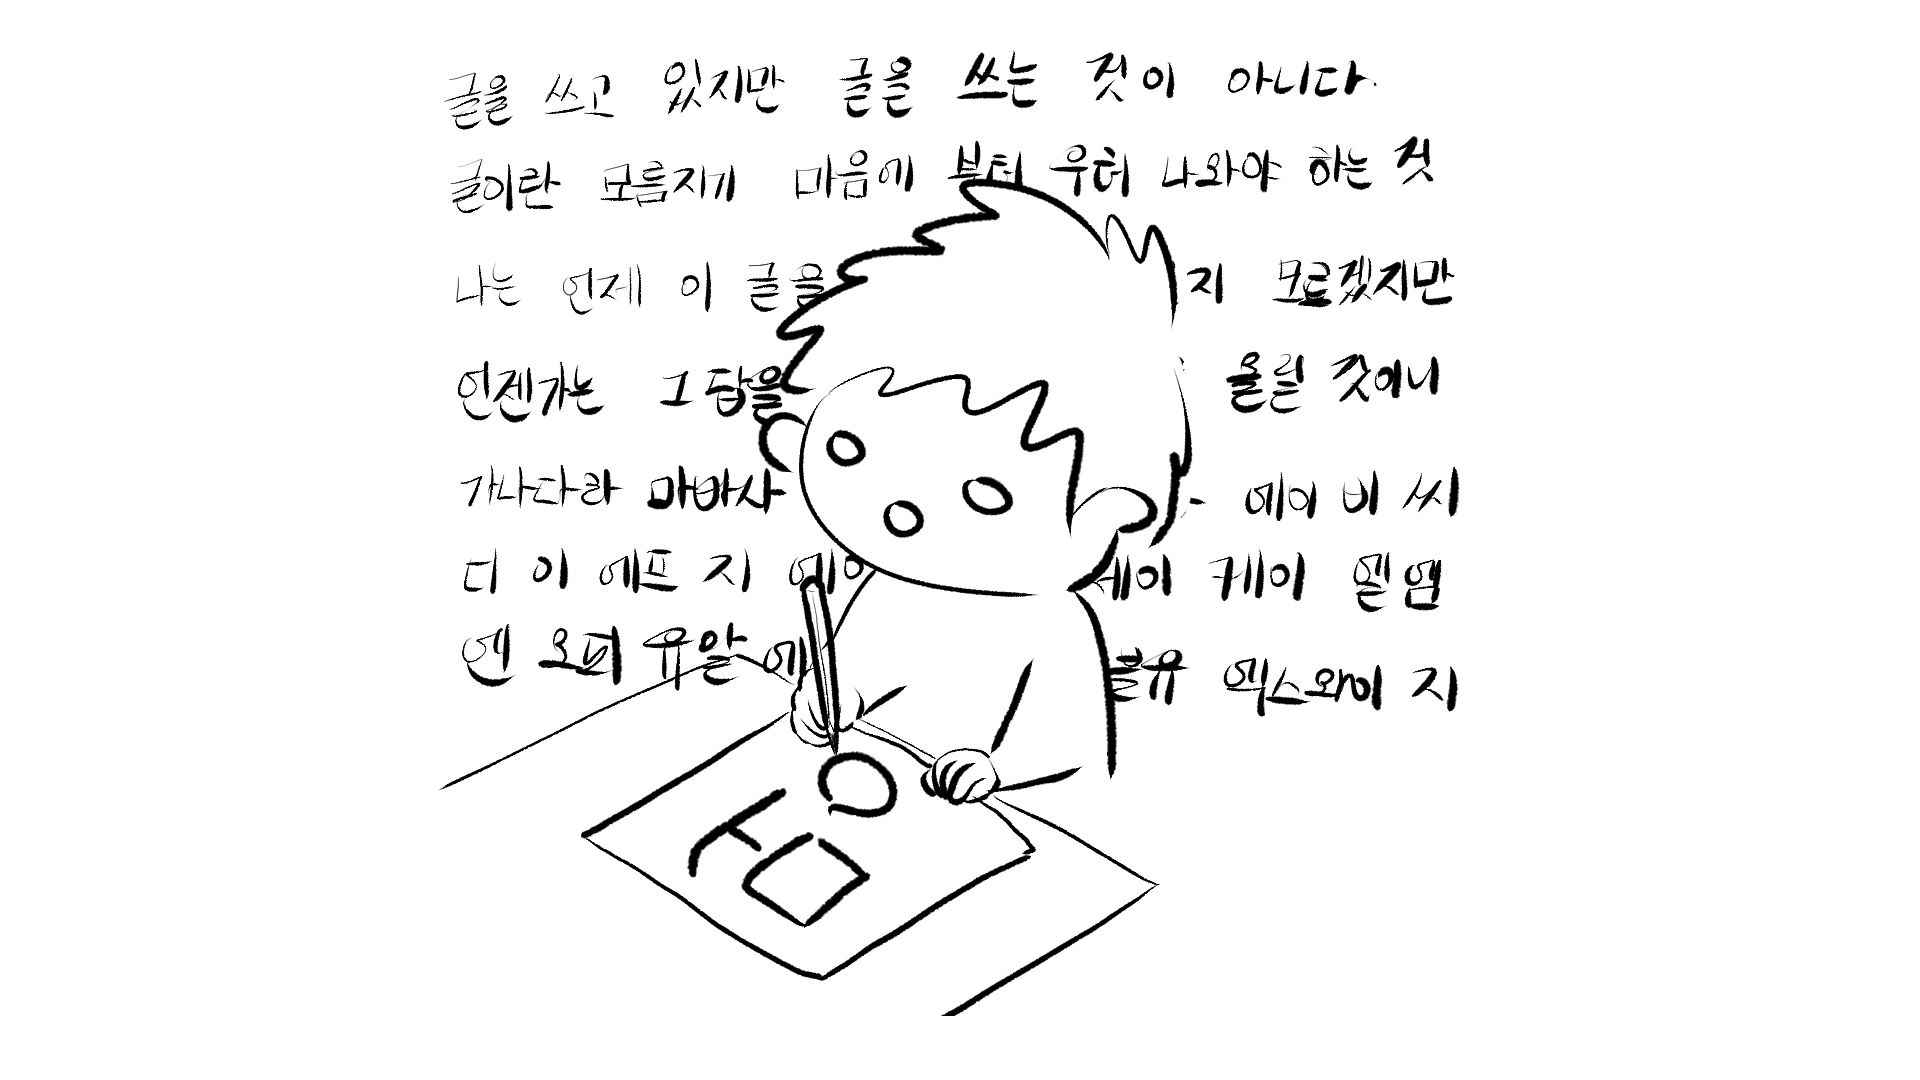 글을 쓰고 있지만 글을 쓰는 것이 아니다.
글이란 모름지기 마음에 부터 우터 나와야 하는 것
나는 언제 이 글을 지 모르겠지만
언젠가는 그 답을 올릴 것이니
가나다라 마바사 에이 비 씨
디 이 에프 지 에이 케이 엘 엠
엔 오 피 유 알 엑스 와이 지